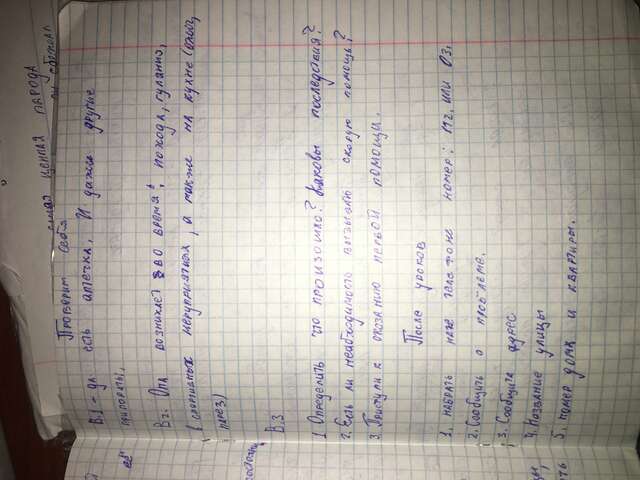 самая ценная порода
Проверим себя
В.1 - да есть аптечка, И даже другие
припораты,
В2. Она возникает во время: похода, гуляния,
в спотивных мероприятиях, а также на кухне (ожог,
парез)
В.3
1. Определить что произошло? Каковы последствия?
2. Есть ли необходимость вызывать скорую помощь?
3. Преступи к оказанию первой помощи.
После уроков
1. набрать на телефоне номер: 112, или 03.
2. Сообщить о проблеме.
3. Сообщить адрес:
4. Название улицы
5. номер дома и квартиры.